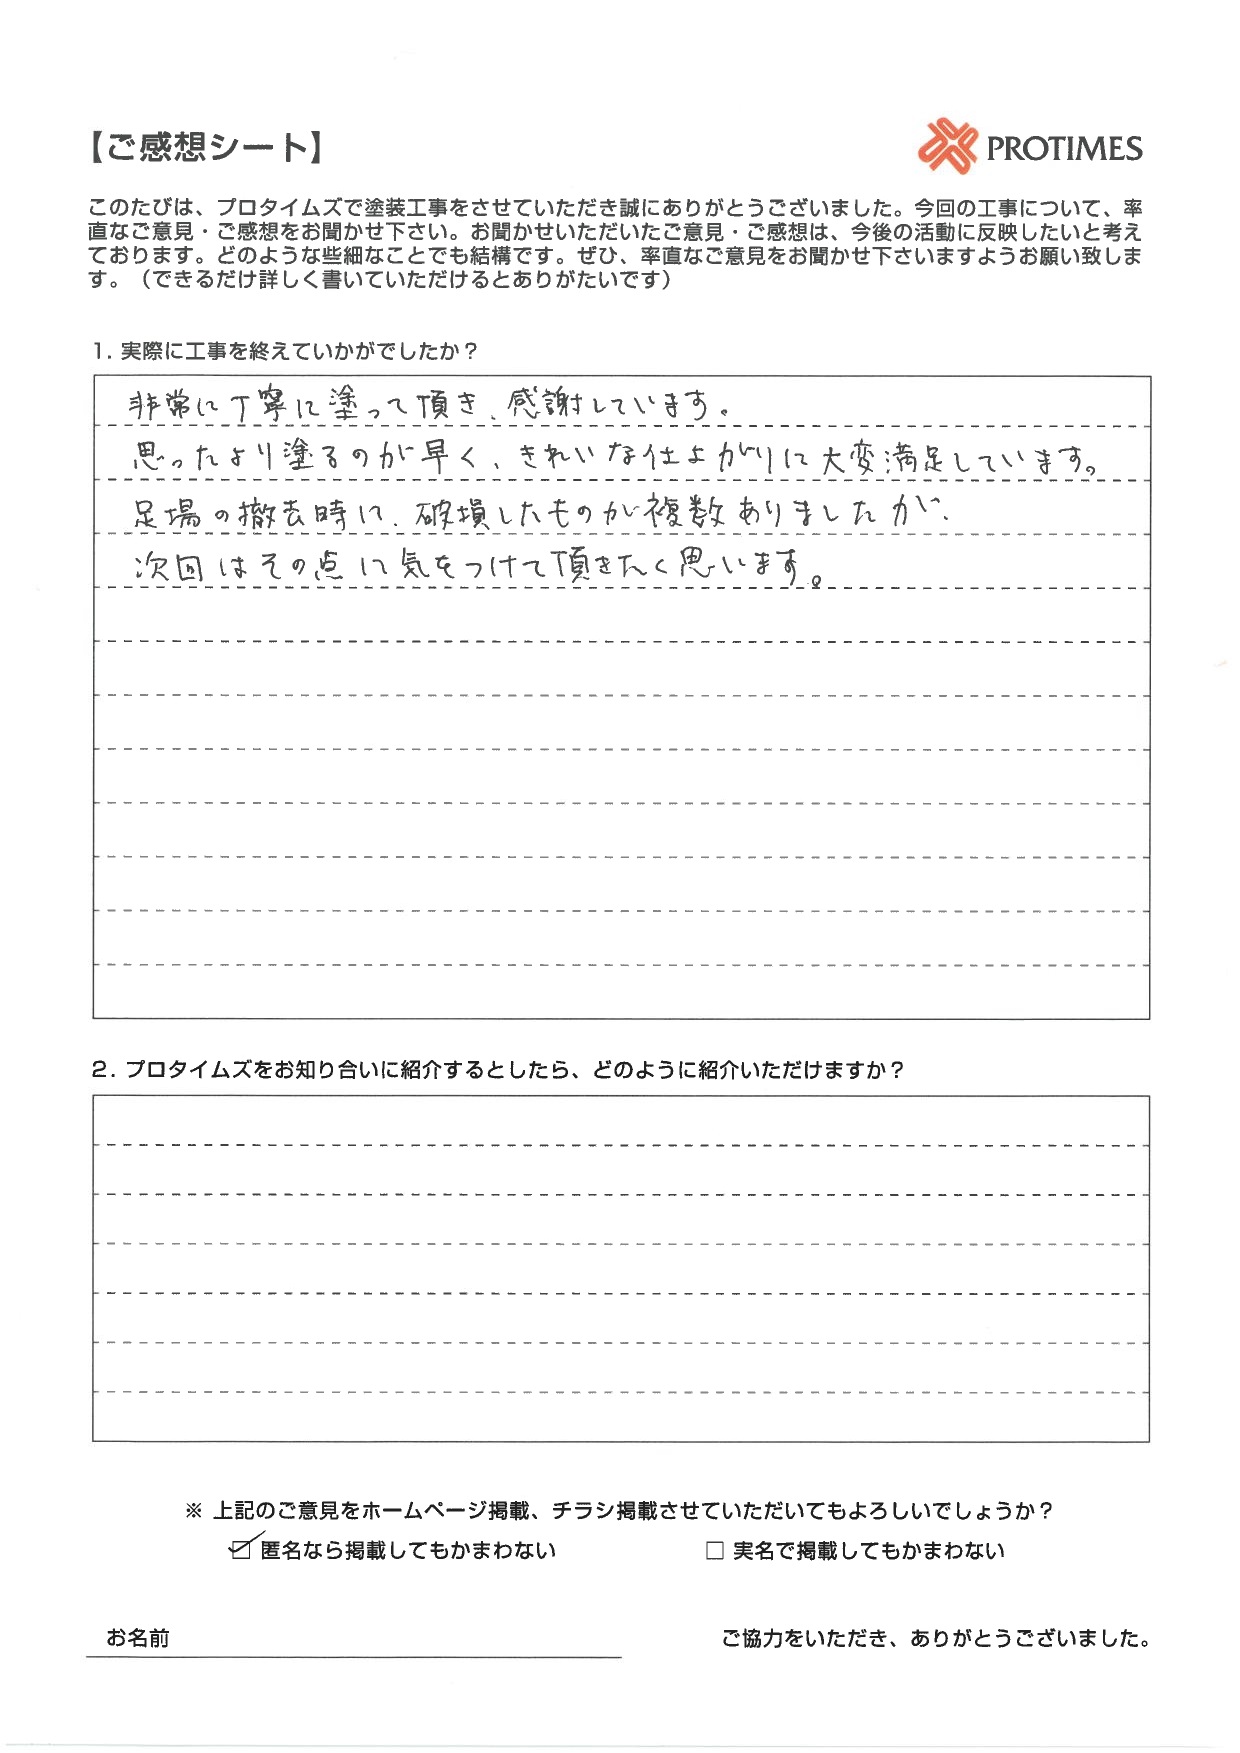 【ご感想シート】
PROTIMES
このたびは、プロタイムズで塗装工事をさせていただき誠にありがとうございました。今回の工事について、率
直なご意見・ご感想をお聞かせ下さい。お聞かせいただいたご意見・ご感想は、今後の活動に反映したいと考え
ております。どのような些細なことでも結構です。ぜひ、率直なご意見をお聞かせ下さいますようお願い致しま
す。（できるだけ詳しく書いていただけるとありがたいです）
1. 実際に工事を終えていかがでしたか？
非常に丁寧に塗って頂き、感謝しています。
思ったより塗るのが早く、きれいな仕上がりに大変満足しています。
足場の撤去時に、破損したものが複数ありましたが、
次回はその点に気をつけて頂きたく思います。
2. プロタイムズをお知り合いに紹介するとしたら、どのように紹介いただけますか？
※ 上記のご意見をホームページ掲載、チラシ掲載させていただいてもよろしいでしょうか？
☑ 匿名なら掲載してもかまわない □ 実名で掲載してもかまわない
お名前 ご協力をいただき、ありがとうございました。